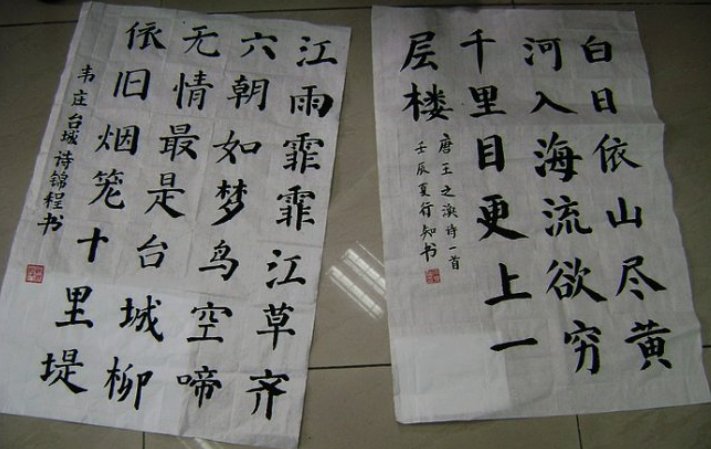 白日依山尽黄
河入海流欲穷
千里目更上一
层楼
唐王之涣诗一首
壬辰夏行知书
江雨霏霏江草齐
六朝如梦鸟空啼
无情最是台城柳
依旧烟笼十里堤
韦庄台城诗锦程书